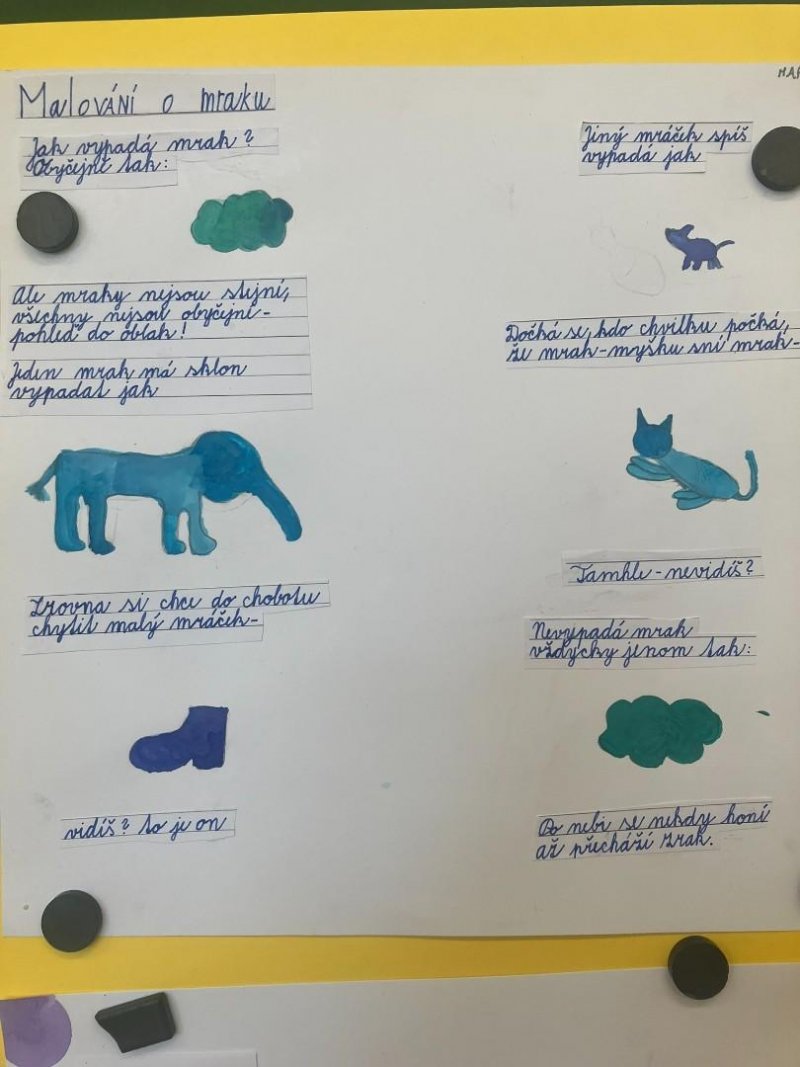 Malování o mraku
Jak vypadá mrak?
Obyčejně tak:
Ale mraky nejsou stejní,
všichny nejsou obyčejní-
pohleď do oblak!
Jeden mrak má sklon
vypadat jak
Zrovna si chce do chobotu
chytit malý mráček-
vidíš? to je on
Jiný mráček spíš
vypadá jak
Dočká se, kdo chvilku počká,
že mrak-myšku sní mrak-
Tamhle-nevidíš?
Nevypadá mrak
vždycky jenom tak:
Po nebi se někdy honí
až přechází zrak.